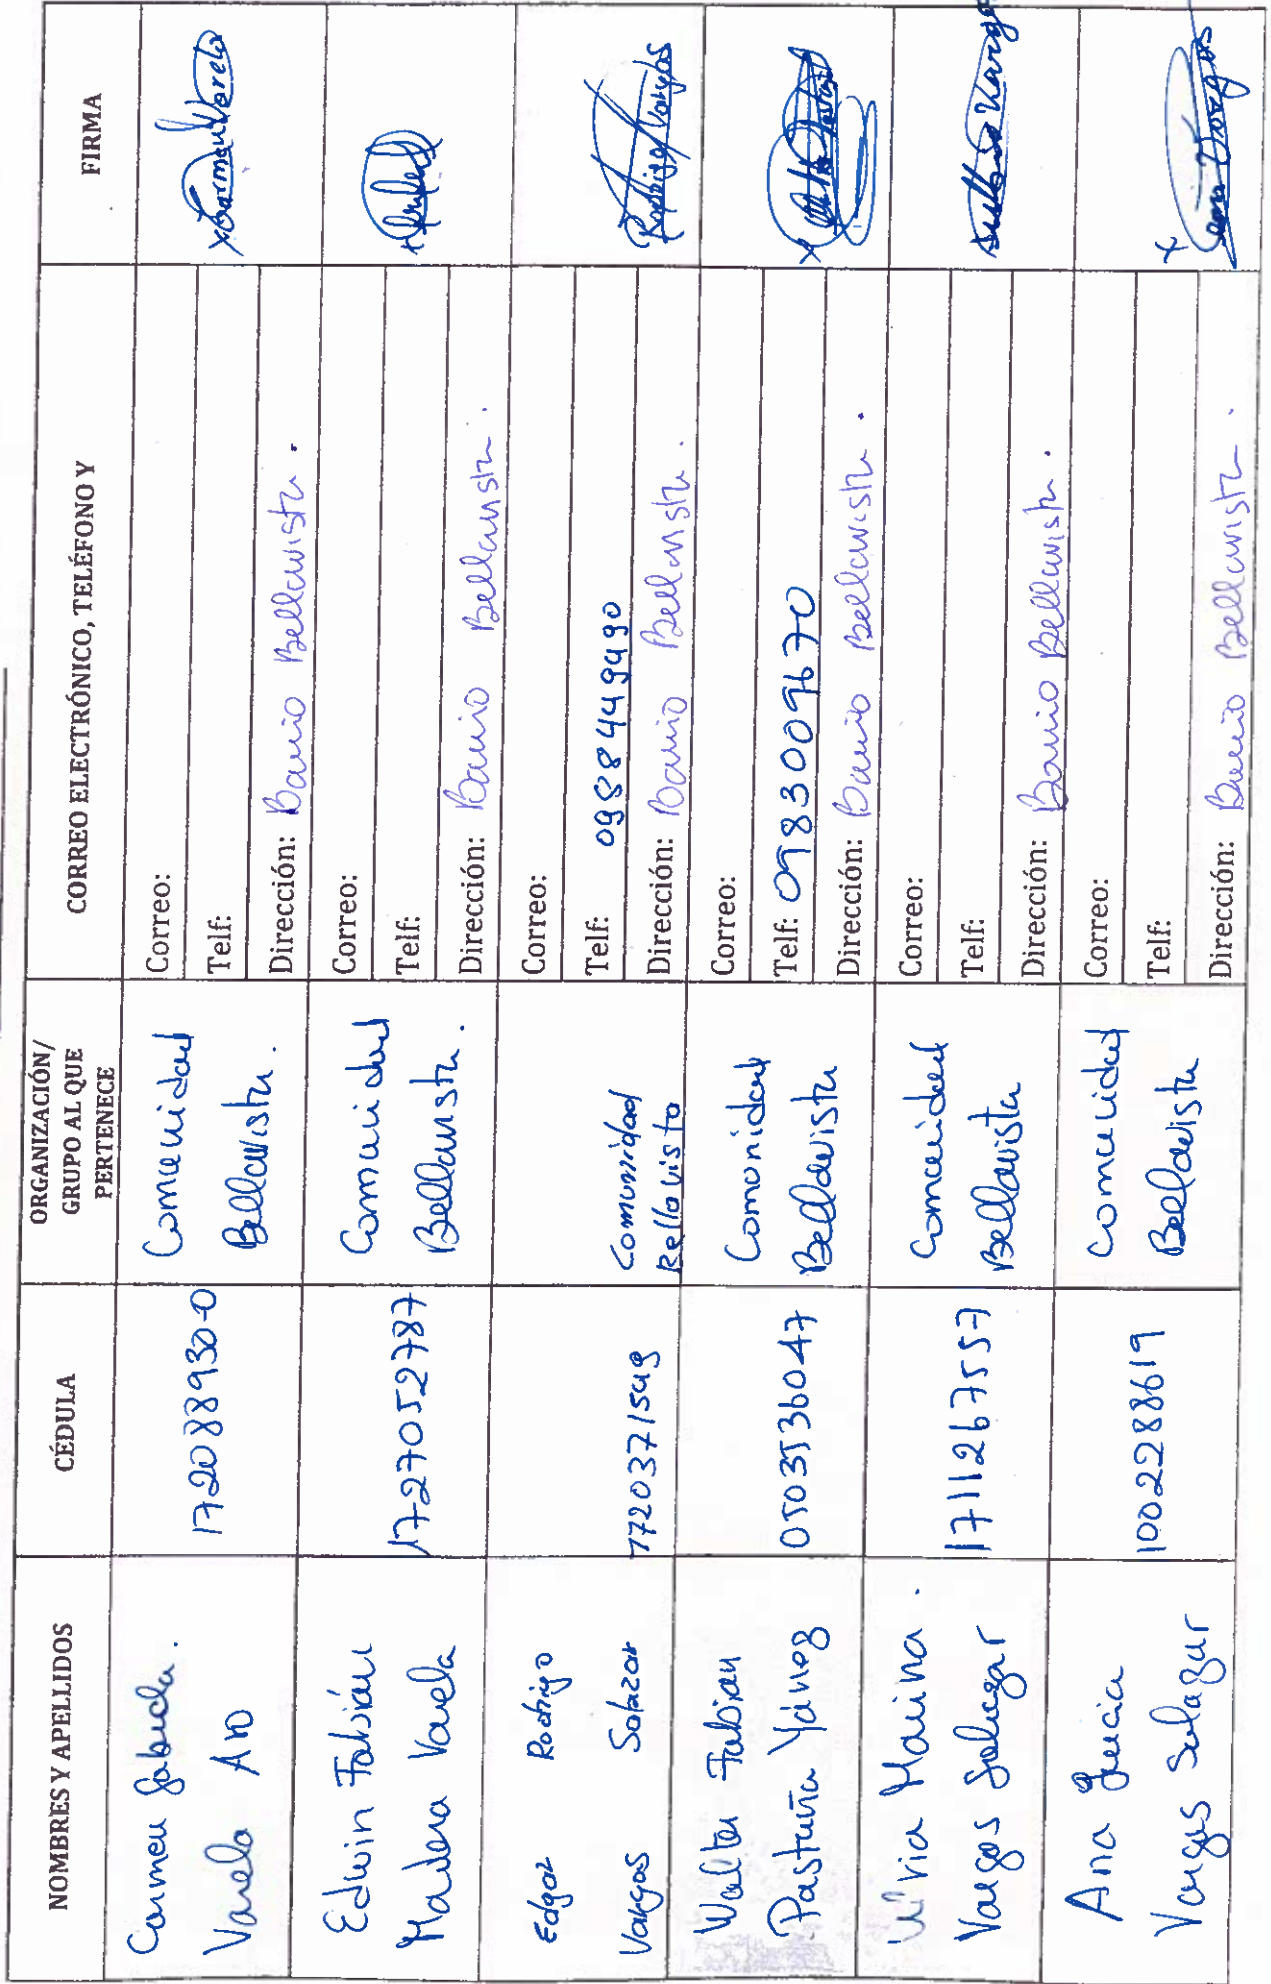 NOMBRES Y APELLIDOS
CÉDULA
ORGANIZACIÓN/
GRUPO AL QUE
PERTENECE
CORREO ELECTRÓNICO, TELÉFONO Y
FIRMA
Carmen
Varela
172088930-0
Comunidad
Bellavista.
Correo:
Telf:
Dirección: Barrio Bellavista.
x Carmen Varela
Edwin Fabián
Madera Varela
1727052787
Comunidad
Bellavista.
Correo:
Telf:
Dirección: Barrio Bellavista.
Edgar Rodrigo
Vargas Salazar
1720371549
Comunidad
Bellavista
Correo:
Telf: 0988449490
Dirección: Barrio Bellavista.
Rodrigo Vargas
Walter Fabian
Pastuña Yánez
0503536047
Comonidad
Bellavista
Correo:
Telf: 0983009670
Dirección: Barrio Bellavista.
x
Marina.
Vargas Salazar
1711267557
Comunidad
Bellavista
Correo:
Telf:
Dirección: Barrio Bellavista.
Vargas
Ana Lucia
Vargas Salazar
1002288619
Comunidad
Bellavista
Correo:
Telf:
Dirección: Barrio Bellavista.
x
Vargas